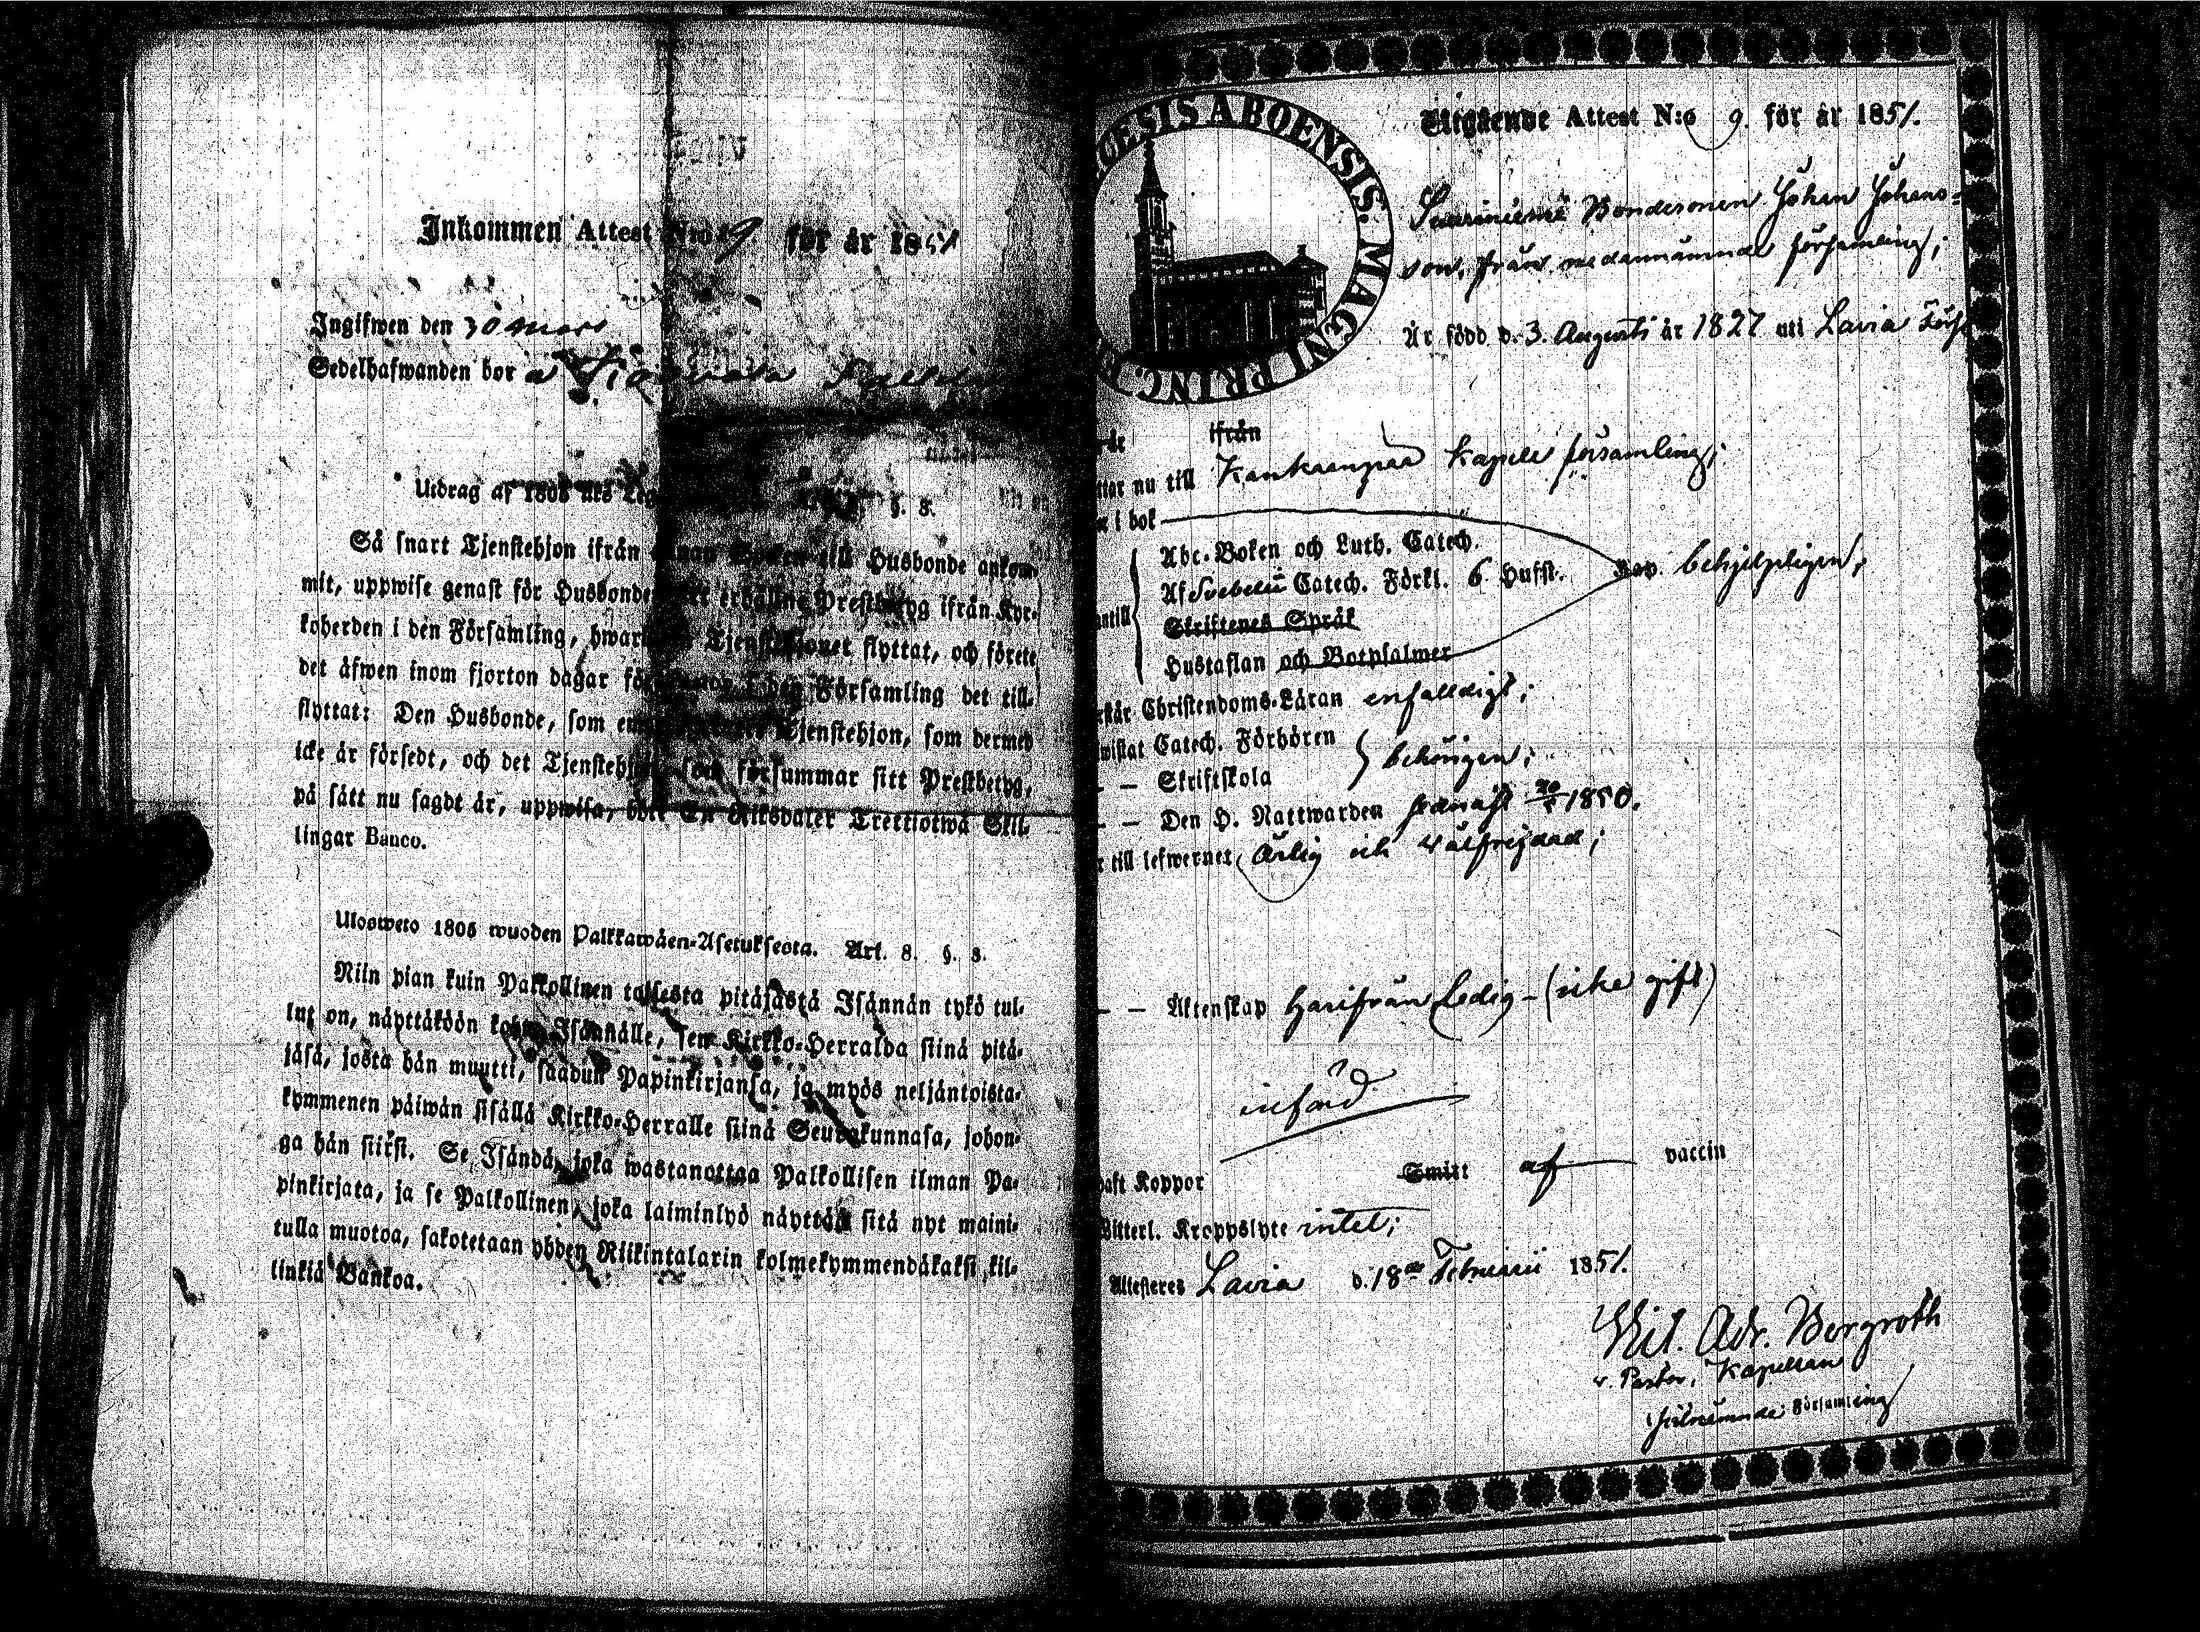 Inkommen Attest N:o 9. för år 1851
Ingifwen den 30 mars
Sedelhafwanden bor å
Utdrag af 1805 års §. 8.
Så snart Tjenstehjon ifrån annan Socken till Husbonde ankom-
mit, uppwise genast för Husbonde erhållne Prestbetyg ifrån Kyr-
koherden i den Församling, hwar Tjenstehjonet flyttat, och förete
det äfwen inom fjorton dagar för i den Församling det till-
flyttat: Den Husbonde, som Tjenstehjon, som dermed
icke är försedt, och det Tjenstehjon, som försummar sitt Prestbetyg,
på sätt nu sagdt är, uppwisa, böte En Riksdaler Trettiotwå Skil-
lingar Banco.
Ulosweto 1805 wuoden Palkkawäen-Asetuksesta. Art. 8. §. 8.
Niin pian kuin Palkollinen toisesta pitäjästä Isännän tykö tul-
lut on, näyttäköön kohta Isännälle, sen Kirkko-Herralda siinä pitä-
jäsä, josta hän muutti, saadun Papinkirjansa, ja myös neljäntoista-
kymmenen päiwän sisällä Kirkko-Herralle siinä Seurakunnasa, johon-
ga hän siirsi. Se Isändä, joka wastanottaa Palkollisen ilman Pa-
pinkirjata, ja se Palkollinen, joka laiminlyö näyttää sitä nyt maini-
tulla muotoa, sakotetaan yhden Riikintalarin kolmekymmendäkaksi kil-
linkiä Bankoa.
DIOECESIS ABOENSIS. MAGNI PRINC.
Utgående Attest N:o 9. för år 1851.
Bondesonen Johan Johans-
son, från nedannämnde församling;
Är född d. 3. Augusti år 1827 uti Lavia
ifrån
nu till Kankaanpää Kapell församling;
i bok
Abc-Boken och Luth. Catech.
Af Svebelii Catech. Förkl. 6 Hufst. behjelpligen;
Skriftenes Språk
Hustaflan och Botpsalmer
Christendoms-Läran enfaldigt;
Catech. Förhören
— Skriftskola } behörigen;
— — Den H. Nattwarden sednast 1850.
till lefwernet, Ärlig och välfrejdad;
— — Äktenskap Härifrån Ledig – (icke gift)
införd
haft Koppor Smitt af vaccin
Kroppslyte intet;
Attesteres Lavia d. 18de Februarii 1851.
Adr. Borgroth
v. Pastor, Kapellan
Församling